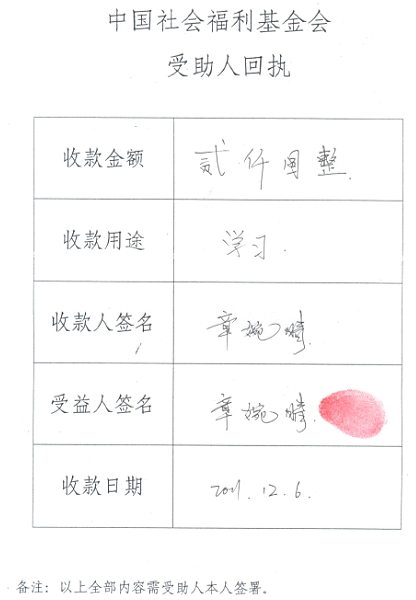 中国社会福利基金会
受助人回执
收款金额 贰仟圆整.
收款用途 学习.
收款人签名 章婉晴
受益人签名 章婉晴.
收款日期 2021.12.6.
备注: 以上全部内容需受助人本人签署。